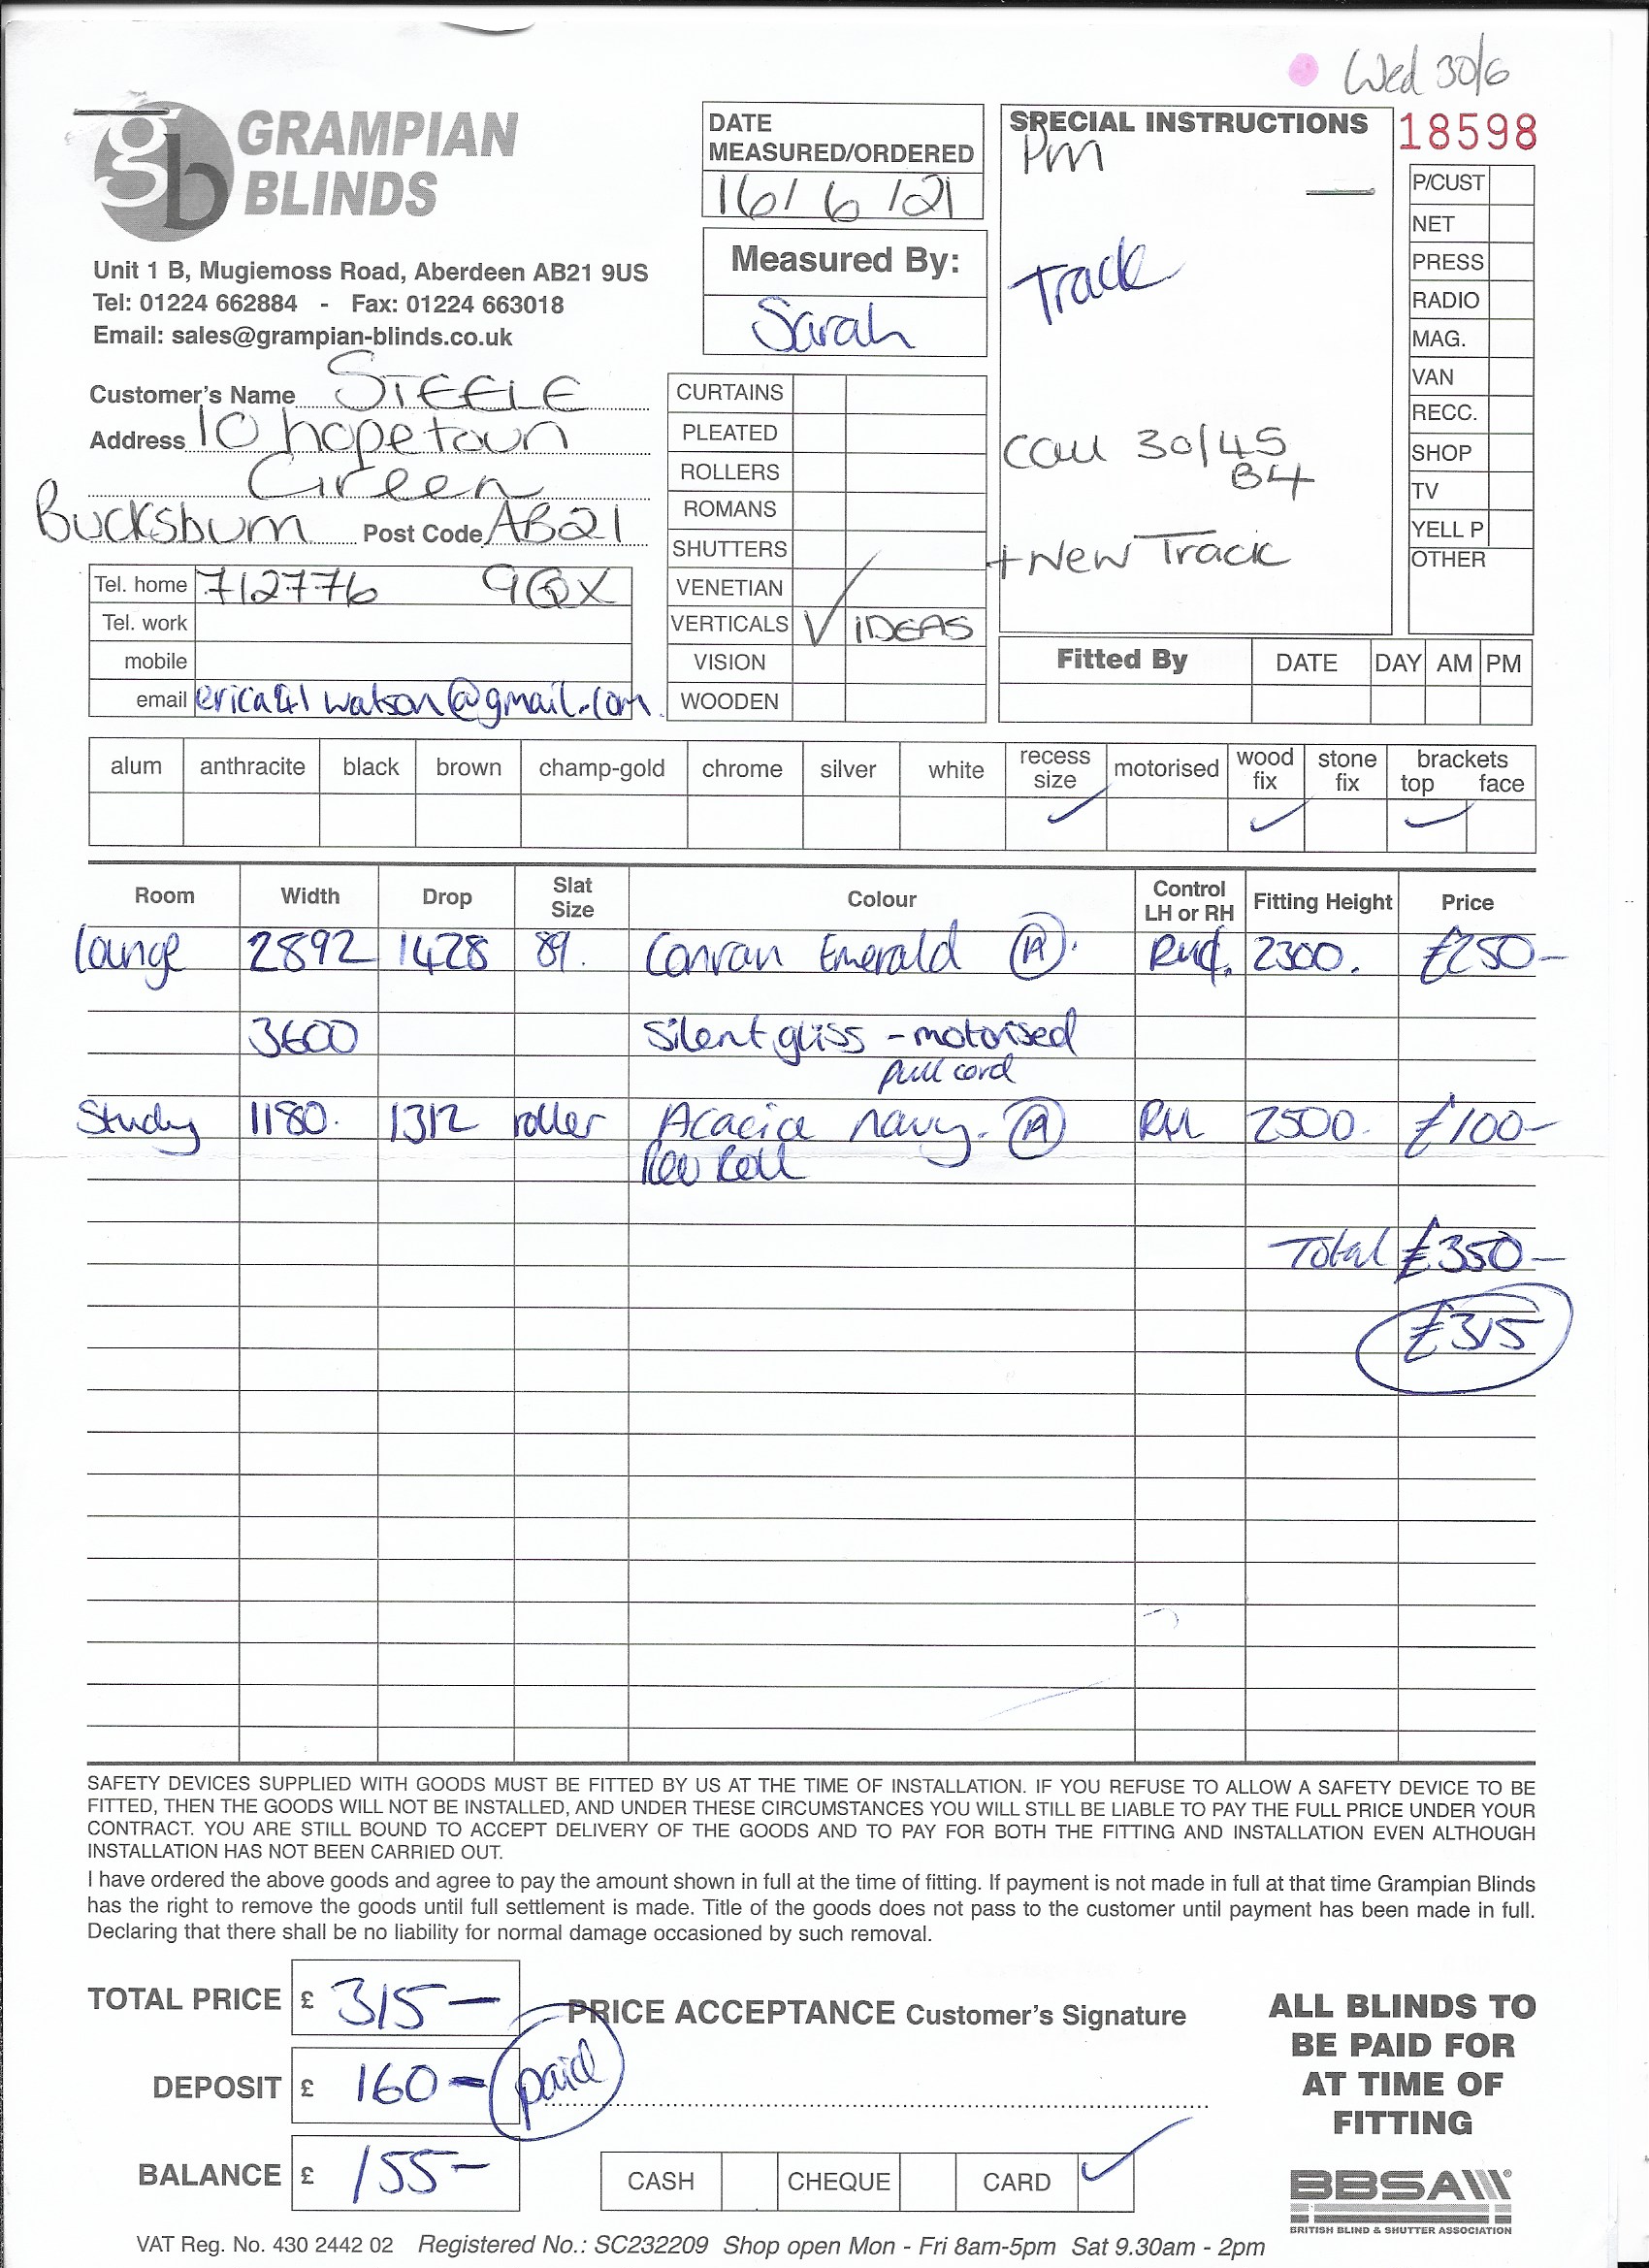 Wed 30/6
gb GRAMPIAN
BLINDS
Unit 1 B, Mugiemoss Road, Aberdeen AB21 9US
Tel: 01224 662884 - Fax: 01224 663018
Email: sales@grampian-blinds.co.uk
DATE
MEASURED/ORDERED
16/6/21
Measured By:
Sarah
SPECIAL INSTRUCTIONS
Pm
Track
Call 30/45
B4
+ New Track
18598
P/CUST
NET
PRESS
RADIO
MAG.
VAN
RECC.
SHOP
TV
YELL P
OTHER
Customer's Name STEELE
Address 10 hopetoun
Green
Bucksburn Post Code AB21
Tel. home 712776 9QX
Tel. work
mobile
email erica41watson@gmail.com
CURTAINS
PLEATED
ROLLERS
ROMANS
SHUTTERS
VENETIAN
VERTICALS ✓ IDEAS
VISION
WOODEN
Fitted By DATE DAY AM PM
alum anthracite black brown champ-gold chrome silver white recess size motorised wood fix stone fix brackets top face
✓ ✓ ✓
Room Width Drop Slat Size Colour Control LH or RH Fitting Height Price
lounge 2892 1428 89. Conran Emerald (A). 2300. £250-
3600 Silent gliss - motorised
pull cord
Study 1180. 1312 roller Acacia navy. (A) RH 2500. £100-
Rev Roll
Total £350-
£315
SAFETY DEVICES SUPPLIED WITH GOODS MUST BE FITTED BY US AT THE TIME OF INSTALLATION. IF YOU REFUSE TO ALLOW A SAFETY DEVICE TO BE
FITTED, THEN THE GOODS WILL NOT BE INSTALLED, AND UNDER THESE CIRCUMSTANCES YOU WILL STILL BE LIABLE TO PAY THE FULL PRICE UNDER YOUR
CONTRACT. YOU ARE STILL BOUND TO ACCEPT DELIVERY OF THE GOODS AND TO PAY FOR BOTH THE FITTING AND INSTALLATION EVEN ALTHOUGH
INSTALLATION HAS NOT BEEN CARRIED OUT.
I have ordered the above goods and agree to pay the amount shown in full at the time of fitting. If payment is not made in full at that time Grampian Blinds
has the right to remove the goods until full settlement is made. Title of the goods does not pass to the customer until payment has been made in full.
Declaring that there shall be no liability for normal damage occasioned by such removal.
TOTAL PRICE £ 315-
DEPOSIT £ 160- paid
BALANCE £ 155-
PRICE ACCEPTANCE Customer's Signature
CASH CHEQUE CARD ✓
ALL BLINDS TO
BE PAID FOR
AT TIME OF
FITTING
BBSA
BRITISH BLIND & SHUTTER ASSOCIATION
VAT Reg. No. 430 2442 02 Registered No.: SC232209 Shop open Mon - Fri 8am-5pm Sat 9.30am - 2pm